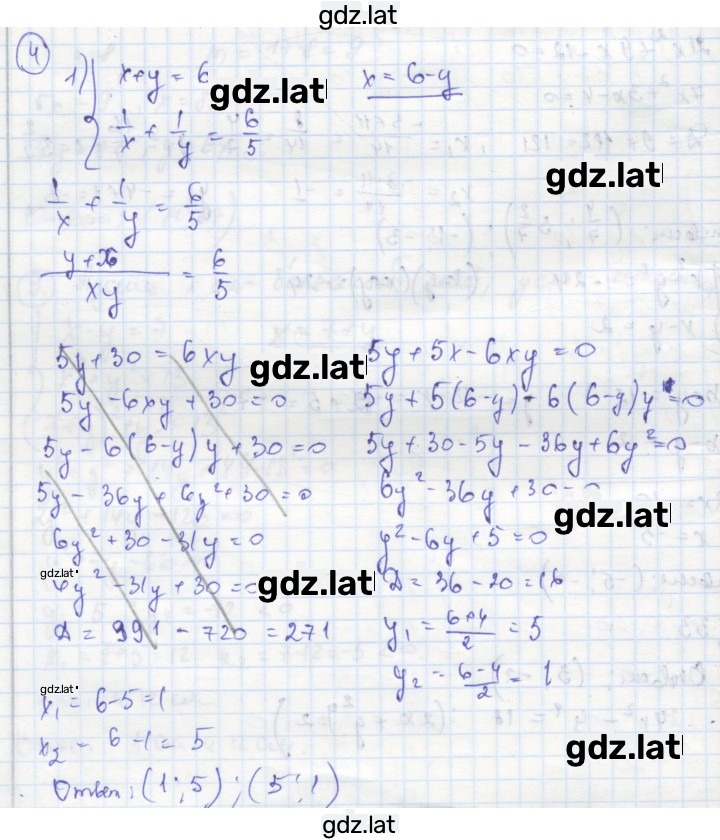 gdz.lat
4
1) { x+y = 6
x = 6-y
gdz.lat
1/x + 1/y = 6/5
gdz.lat
1/x + 1/y = 6/5
y+x / xy = 6/5
5y+30 = 6xy
gdz.lat
5y -6xy + 30 = 0
5y - 6(6-y)y + 30 = 0
5y - 36y + 6y²+30 = 0
6y² + 30 - 31y = 0
gdz.lat
6y² - 31y + 30 = 0
gdz.lat
D = 991 - 720 = 271
5y + 5x - 6xy = 0
5y + 5(6-y) - 6(6-y)y = 0
5y + 30 - 5y - 36y + 6y² = 0
6y² - 36y + 30 = 0
gdz.lat
y² - 6y + 5 = 0
D = 36 - 20 = 16
y₁ = 6+4/2 = 5
y₂ = 6-4/2 = 1
gdz.lat
x₁ = 6-5 = 1
x₂ = 6-1 = 5
gdz.lat
Ответ: (1;5);(5;1)
gdz.lat